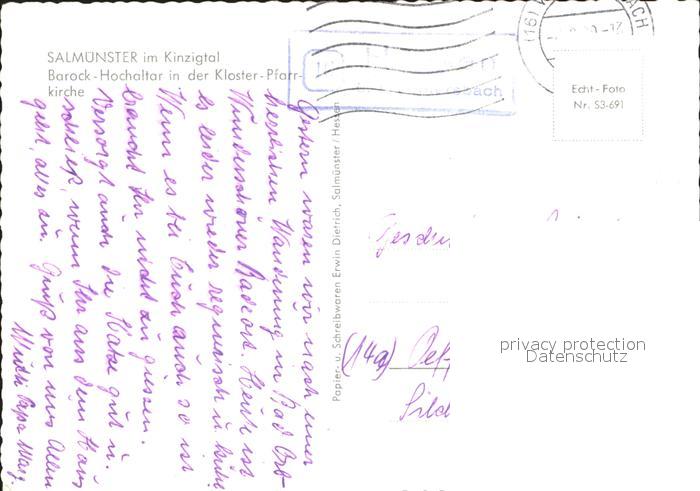 SALMÜNSTER im Kinzigtal
Barock-Hochaltar in der Kloster-Pfarr-
kirche
Echt-Foto
Nr. S3-691
Papier- u. Schreibwaren Erwin Dietrich, Salmünster/Hessen
Gestern waren wir nach einer
herrlichen Wanderung in Bad Orb
Wunderschöner Badeort. Heute ist
es leider wieder regnerisch u.
Wenn es bei Euch auch so ist
braucht Ihr nicht zu giessen.
Versorgt auch die Katze gut u.
schließt, wenn Ihr aus dem Haus
geht, alles zu. Gruß von uns Allen
Mutti Papa Marg.
(14a)
privacy protection
Datenschutz